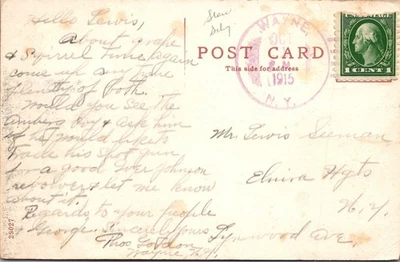 Hello Lewis,
About grape
& Squirrel time again
come up any time
plenty of both.
Would you see the
boy & ask him
if he would like to
trade his shot gun
for a good Iver Johnson
revolver & let me know
about it.
Regards to your people
& George. Sincerely yours
Thos.
Wayne, N.Y.
29027
POST CARD
This side for address
WAYNE
OCT
1915
N.Y.
1 CENT 1
Mr. Lewis Seeman
Elmira Hgts
N.Y.
Lynwood Ave,